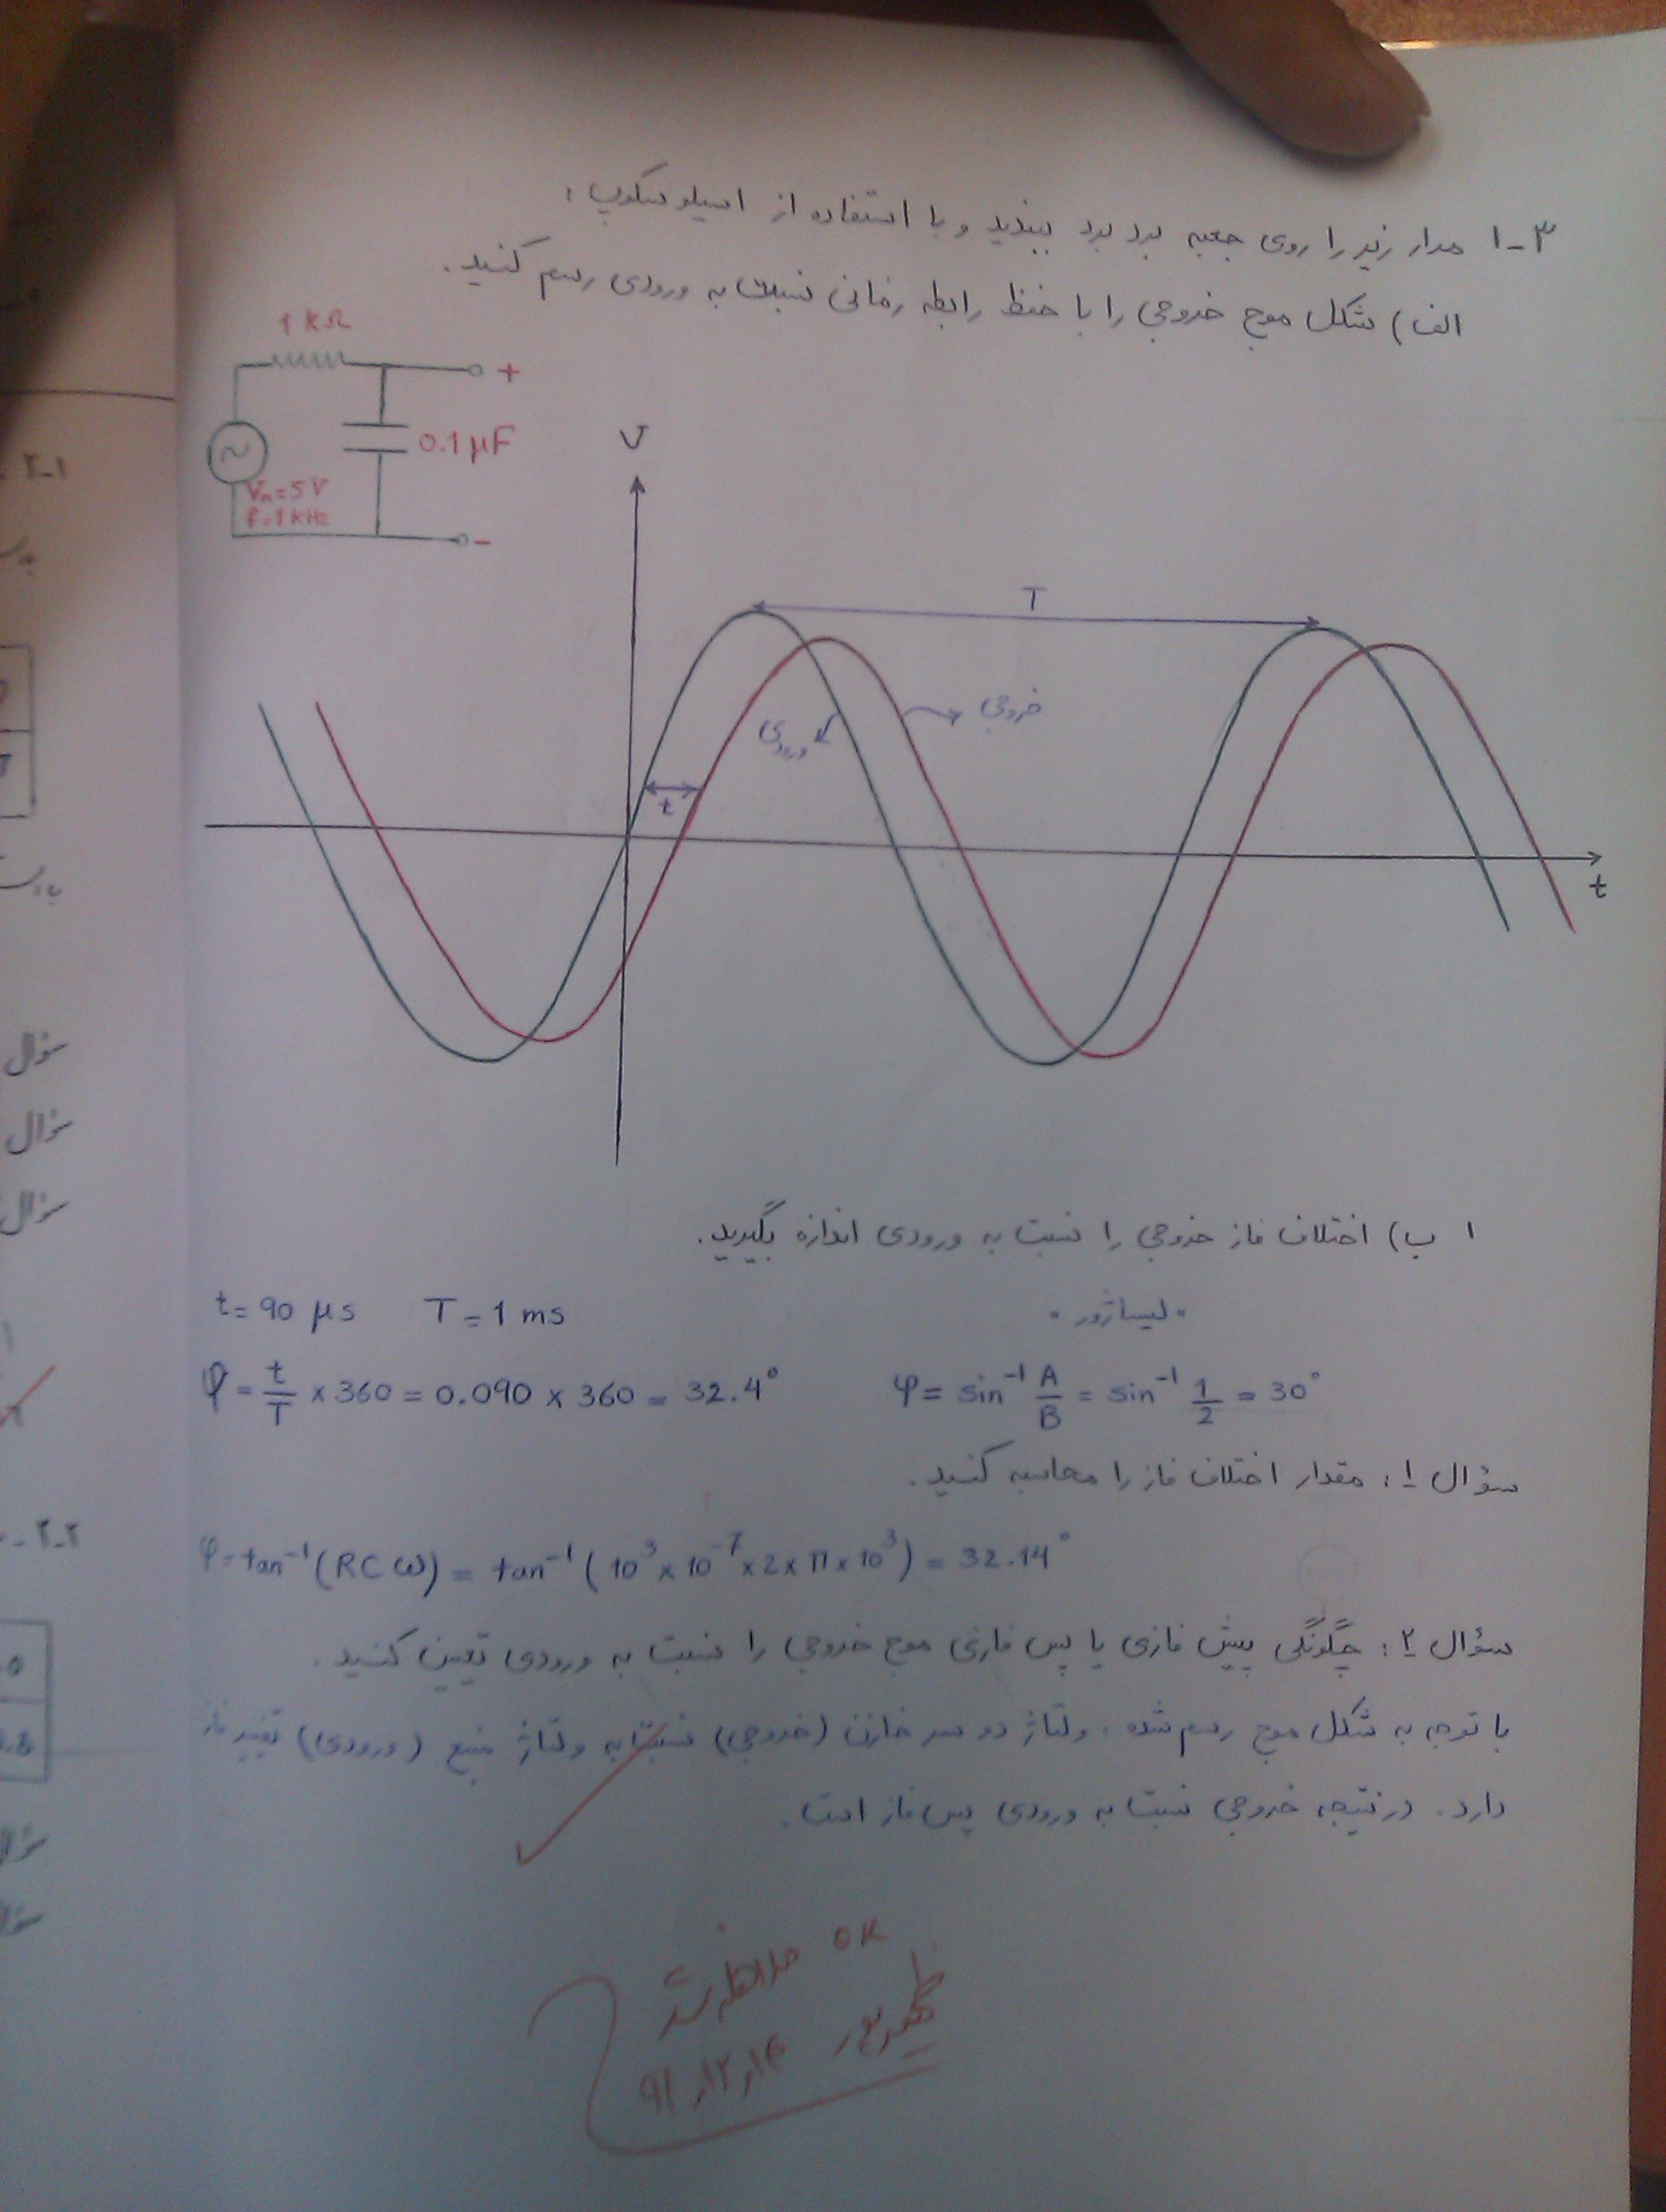 ۳-۱ مدار زیر را روی جعبه برد برد ببندید و با استفاده از اسیلوسکوپ :
الف) شکل موج خروجی را با حفظ رابطه زمانی نسبت به ورودی رسم کنید.
1 KΩ
+
0.1 μF
Vm=5V
f=1KHz
-
V
T
خروجی
ورودی
t
t
ا ب) اختلاف فاز خروجی را نسبت به ورودی اندازه بگیرید.
t= 90 μs T=1 ms
"لیساژور"
φ = t/T × 360 = 0.090 × 360 = 32.4°
φ = sin⁻¹ A/B = sin⁻¹ 1/2 = 30°
سؤال ۱: مقدار اختلاف فاز را محاسبه کنید.
φ = tan⁻¹(RCω) = tan⁻¹(10³×10⁻⁷×2×π×10³) = 32.14°
سؤال ۲: چگونگی پیش فازی یا پس فازی موج خروجی را نسبت به ورودی تعیین کنید.
با توجه به شکل موج رسم شده، ولتاژ دو سر خازن (خروجی) نسبت به ولتاژ منبع (ورودی) تغییر فاز
دارد. در نتیجه خروجی نسبت به ورودی پس فاز است.
OK ملاحظه شد
۹۱,۱۲,۱۴
۱-۲
سؤال
سؤال
سؤال
۲-۲